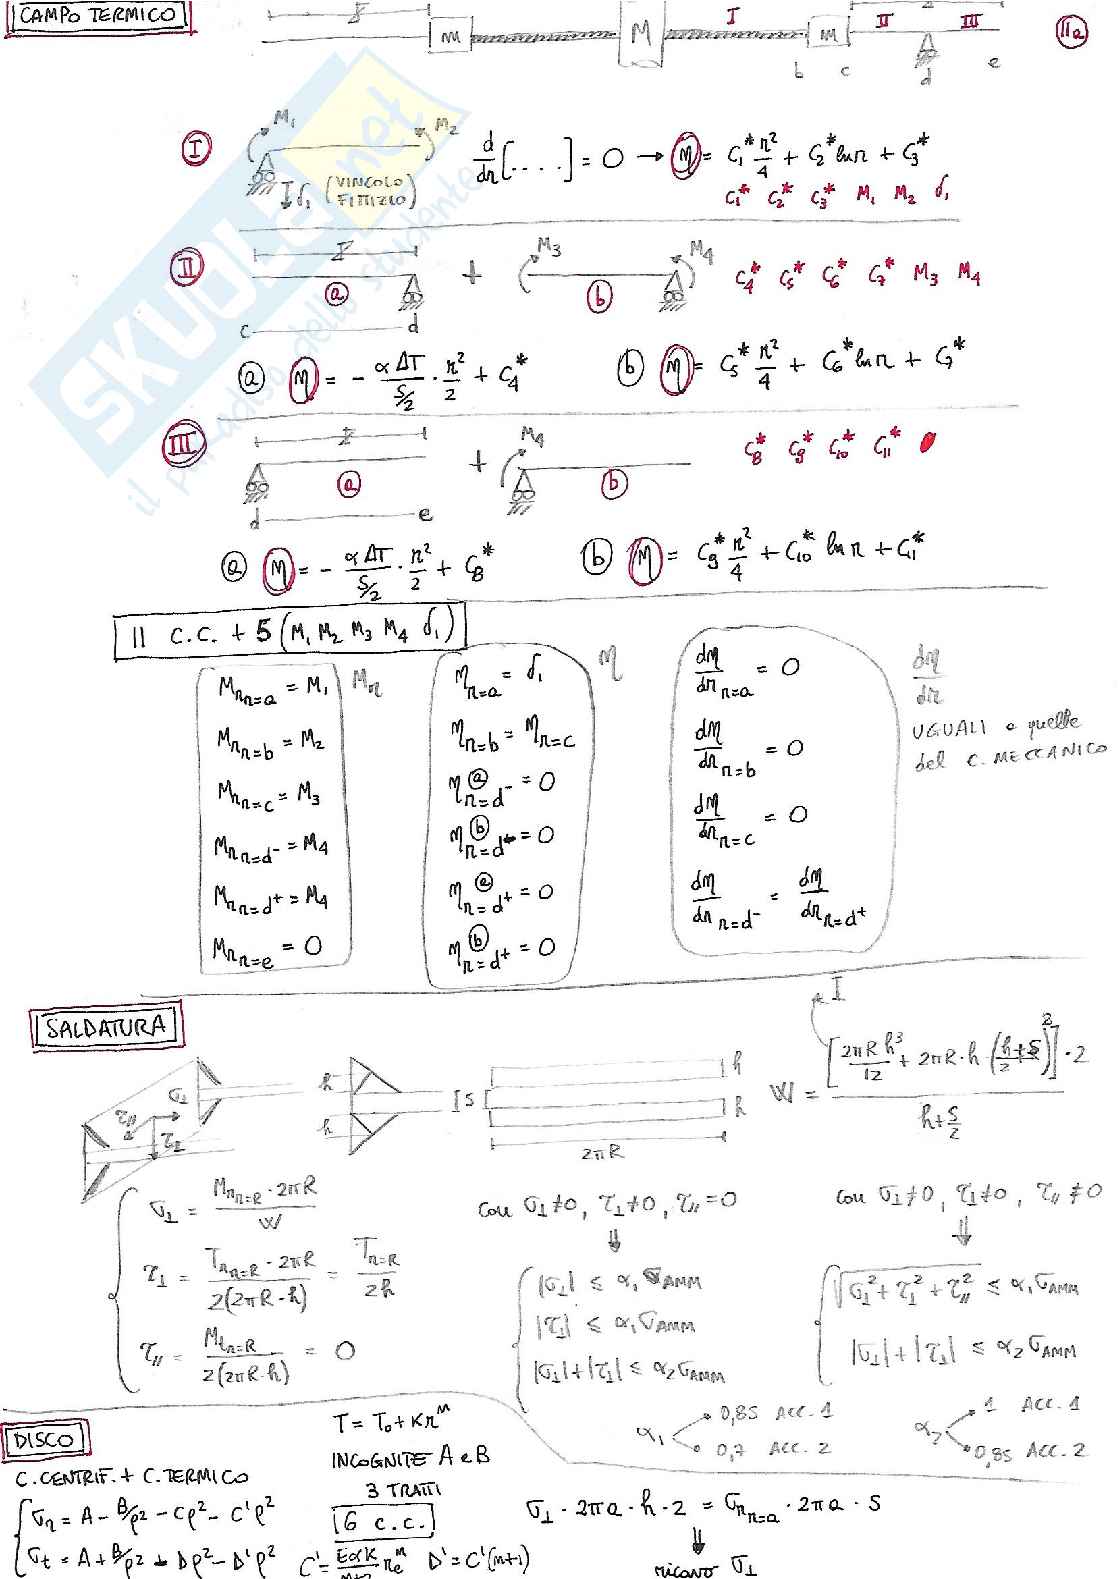 CAMPO TERMICO
m M I m II III IIa
b c d e
I
M₁ M₂
δ₁ (VINCOLO FITTIZIO)
d/dr[....] = 0 → η = C₁* r²/4 + C₂* ln r + C₃*
C₁* C₂* C₃* M₁ M₂ δ₁
II
a + M₃ b M₄
C₄* C₅* C₆* C₇* M₃ M₄
c d
a η = - αΔT/(S/2) · r²/2 + C₄*
b η = C₅* r²/4 + C₆* ln r + C₇*
III
a + M₄ b
C₈* C₉* C₁₀* C₁₁*
d e
a η = - αΔT/(S/2) · r²/2 + C₈*
b η = C₉* r²/4 + C₁₀* ln r + C₁₁*
11 C.C. + 5 (M₁ M₂ M₃ M₄ δ₁)
Mr r=a = M₁
Mr r=b = M₂
Mr r=c = M₃
Mr r=d⁻ = M₄
Mr r=d⁺ = M₄
Mr r=e = 0
Mr
η r=a = δ₁
η r=b = η r=c
η ⓐ r=d⁻ = 0
η ⓑ r=d⁻ = 0
η ⓐ r=d⁺ = 0
η ⓑ r=d⁺ = 0
η
dη/dr r=a = 0
dη/dr r=b = 0
dη/dr r=c = 0
dη/dr r=d⁻ = dη/dr r=d⁺
dη/dr
UGUALI a quelle
del C. MECCANICO
SALDATURA
σ⊥ τ∥ τ⊥
h h S h h
2πR
I
W = [2πR h³/12 + 2πR·h·(h/2+S/2)²]·2 / (h+S/2)
σ⊥ = Mr r=R · 2πR / W
τ⊥ = Tr r=R · 2πR / 2(2πR·h) = T r=R / 2h
τ∥ = Mt r=R / 2(2πR·h) = 0
con σ⊥≠0, τ⊥≠0, τ∥=0
|σ⊥| ≤ α₁ σAMM
|τ⊥| ≤ α₁ σAMM
|σ⊥|+|τ⊥| ≤ α₂ σAMM
con σ⊥≠0, τ⊥≠0, τ∥≠0
√(σ⊥² + τ⊥² + τ∥²) ≤ α₁ σAMM
|σ⊥|+|τ⊥| ≤ α₂ σAMM
α₁ 0,85 ACC. 1
0,7 ACC. 2
α₂ 1 ACC. 1
0,85 ACC. 2
DISCO
C. CENTRIF. + C. TERMICO
σr = A - B/ρ² - Cρ² - C'ρ²
σt = A + B/ρ² - Dρ² - D'ρ²
T = T₀ + Krᵐ
INCOGNITE A e B
3 TRATTI
6 C.C.
D' = C'(m+1)
σ⊥ · 2πa · h · 2 = σr r=a · 2πa · S
ricavo σ⊥
SKUOLA.net
il paradiso dello studente